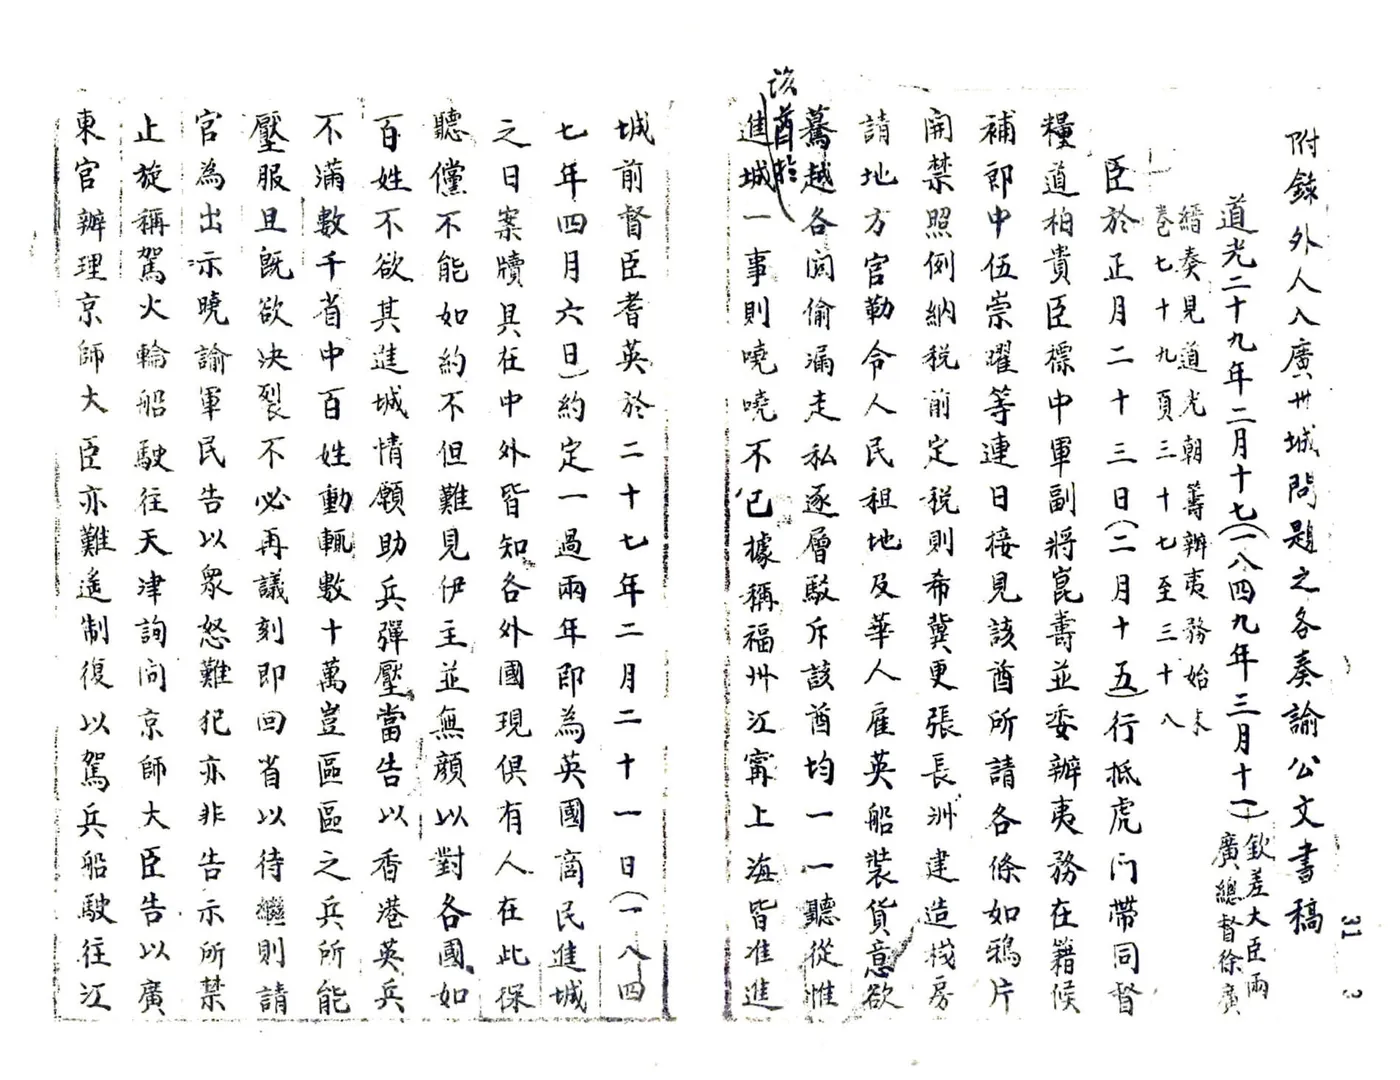 附錄外人入廣州城問題之各奏諭公文書稿
道光二十九年二月十七(一八四九年三月十一)欽差大臣兩
廣總督徐廣
縉奏見道光朝籌辦夷務始末
卷七十九頁三十七至三十八
臣於正月二十三日(二月十五)行抵虎門帶同督
糧道柏貴臣標中軍副將崑壽並委辦夷務在籍候
補郎中伍崇曜等連日接見該酋所請各條如鴉片
開禁照例納稅前定稅則希冀更張長洲建造棧房
請地方官勒令人民租地及華人雇英船裝貨意欲
驀越各關偷漏走私逐層駁斥該酋均一一聽從惟
該酋於
進城一事則嘵嘵不已據稱福州江寗上海皆准進
城前督臣耆英於二十七年二月二十一日(一八四
七年四月六日)約定一過兩年即為英國商民進城
之日案牘具在中外皆知各外國現俱有人在此探
聽儻不能如約不但難見伊主並無顏以對各國如
百姓不欲其進城情願助兵彈壓當告以香港英兵
不滿數千省中百姓動輒數十萬豈區區之兵所能
壓服且既欲決裂不必再議刻即回省以待繼則請
官為出示曉諭軍民告以眾怒難犯亦非告示所禁
止旋稱駕火輪船駛往天津詢問京師大臣告以廣
東官辦理京師大臣亦難遙制復以駕兵船駛往江
31